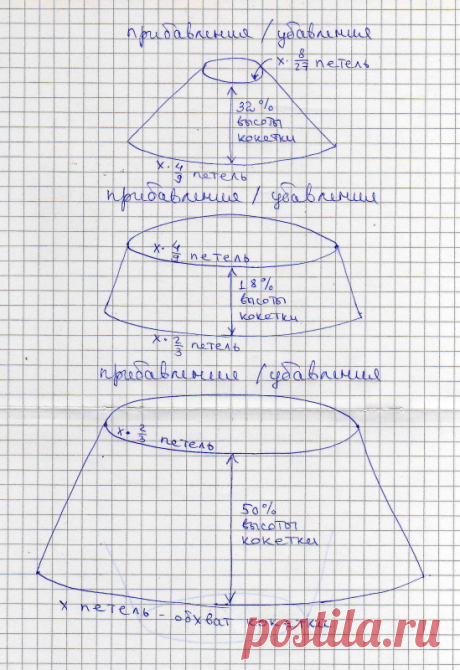 прибавления / убавления
x · 8/27 петель
32%
высоты
кокетки
x · 4/9 петель
прибавления / убавления
x · 4/9 петель
18%
высоты
кокетки
x · 2/3 петель
прибавления / убавления
x · 2/3 петель
50%
высоты
кокетки
x петель - обхват кокетки
postila.ru